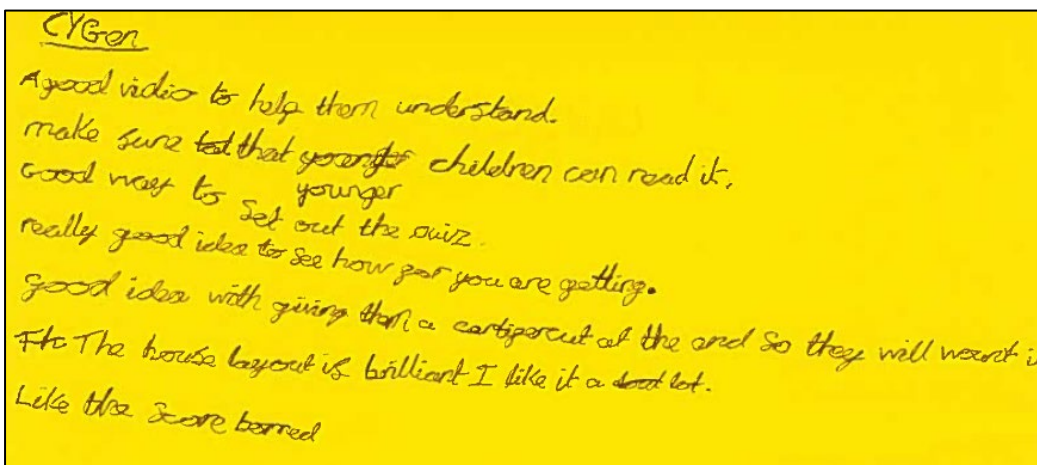 CYGen
A good vidio to help them understand.
make sure that younger children can read it.
Good way to set out the quiz.
really good idea to see how far you are getting.
good idea with giving them a certipercut at the end so they will want i
The house layout is brilliant I like it a lot.
Like the score borred